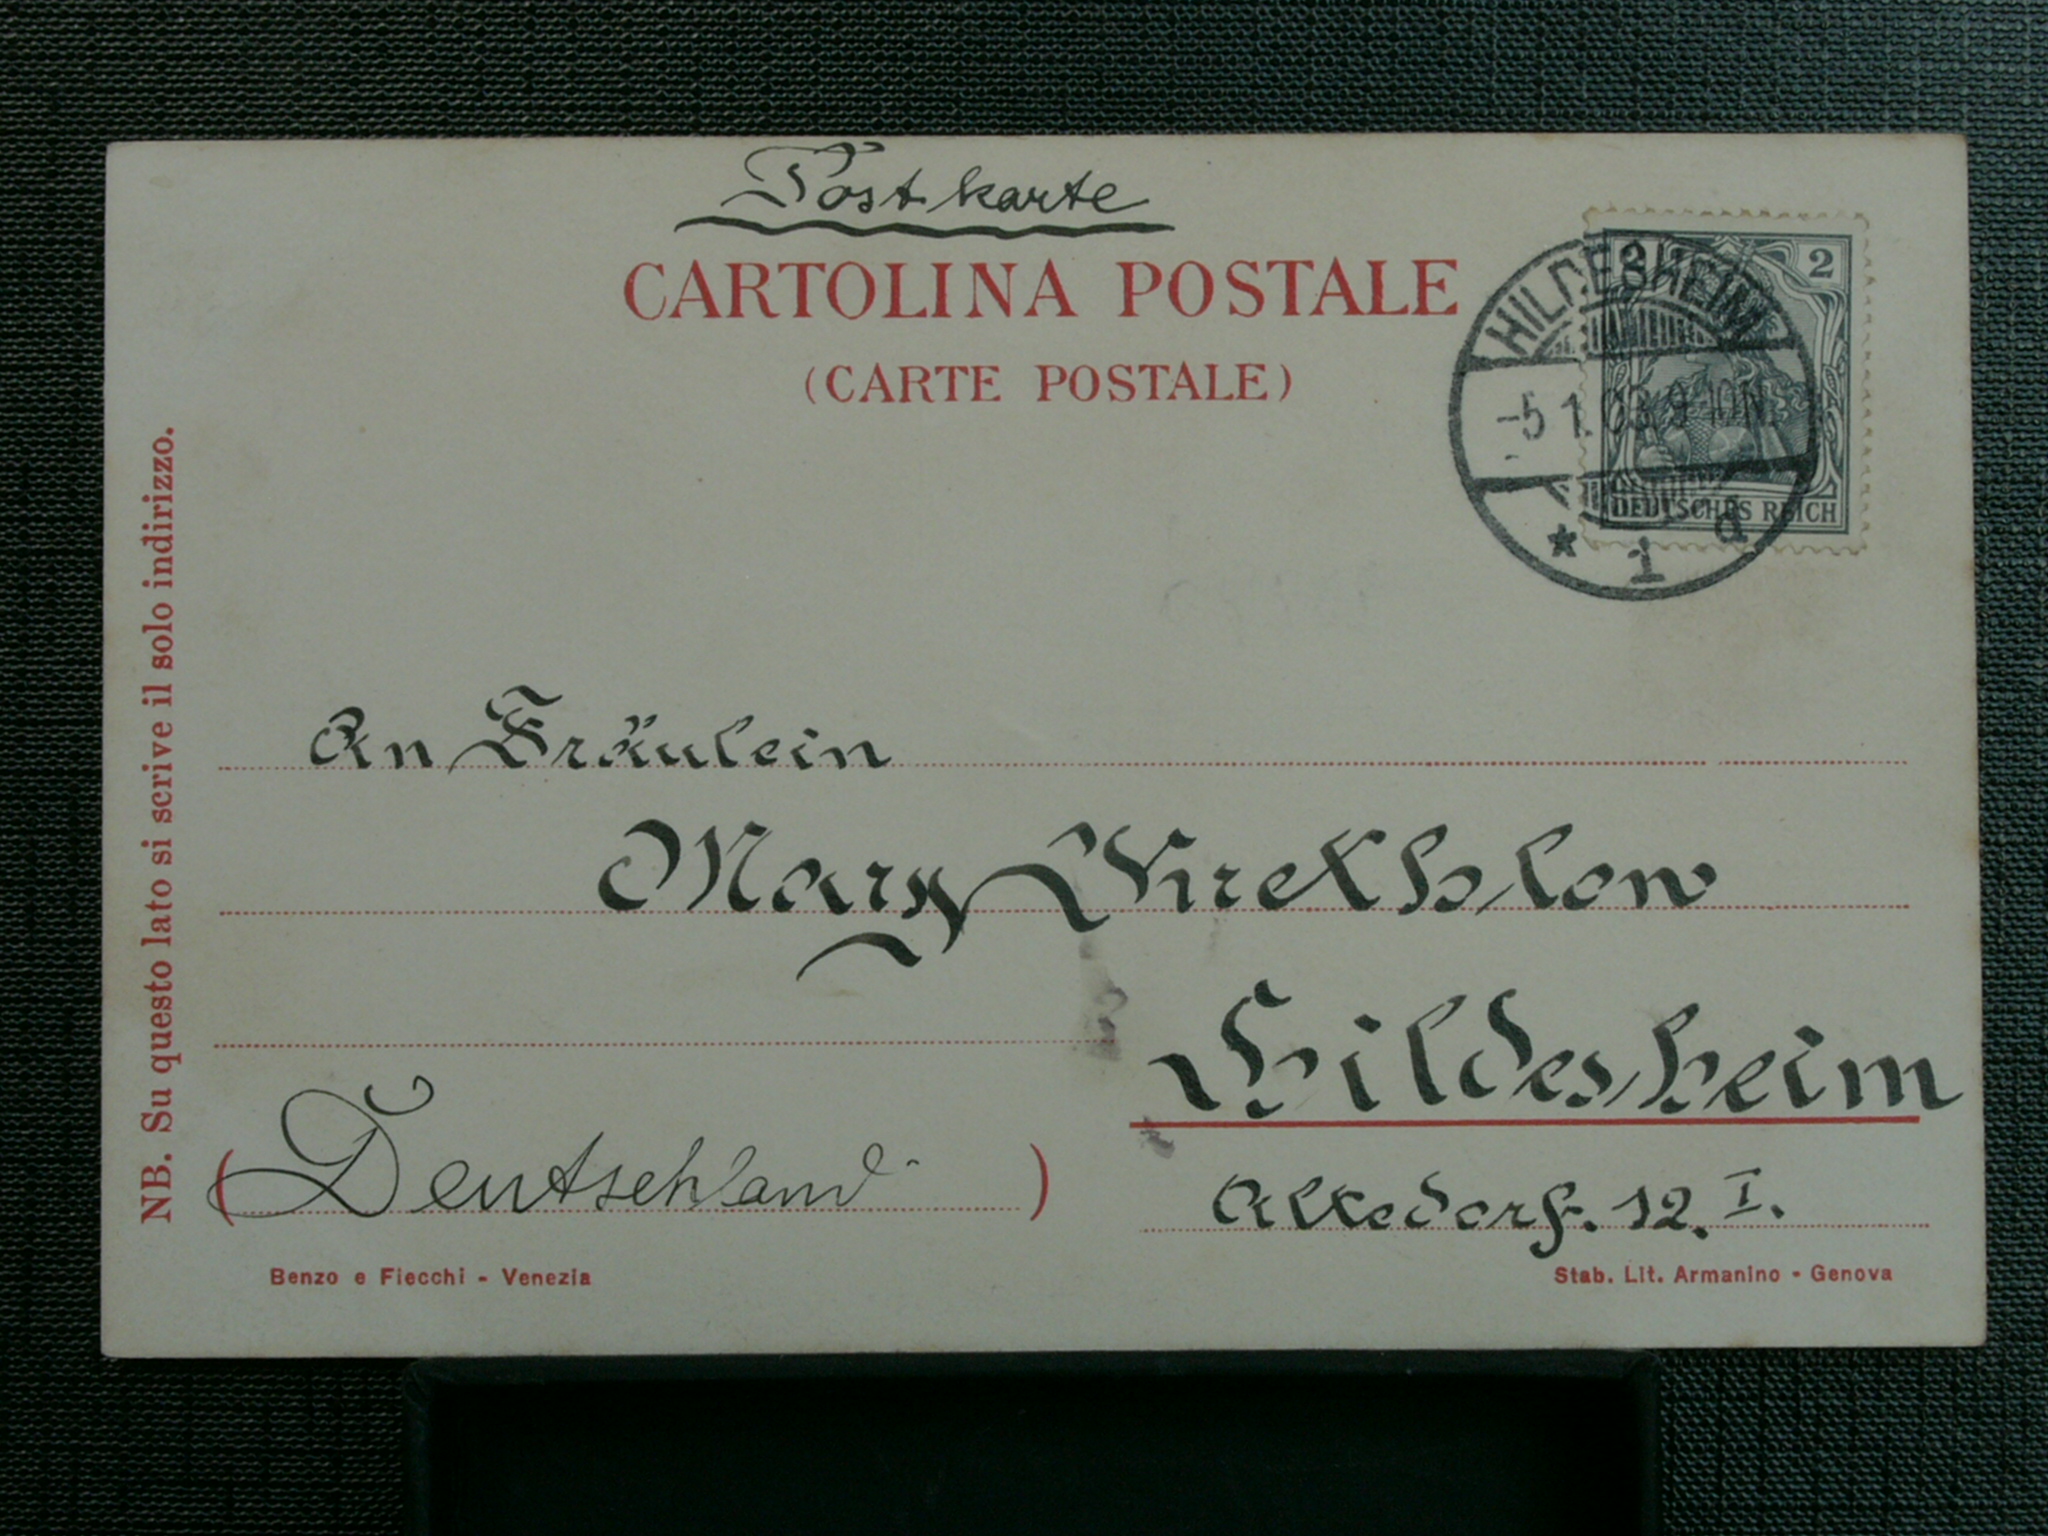 Postkarte
CARTOLINA POSTALE
(CARTE POSTALE)
2 2
HILDESHEIM
-5 1. 03. 9-10 N
* 1 d
DEUTSCHES REICH
NB. Su questo lato si scrive il solo indirizzo.
An Fräulein
Mary
Hildesheim
(Deutschland)
12. I.
Benzo e Fiecchi - Venezia
Stab. Lit. Armanino - Genova